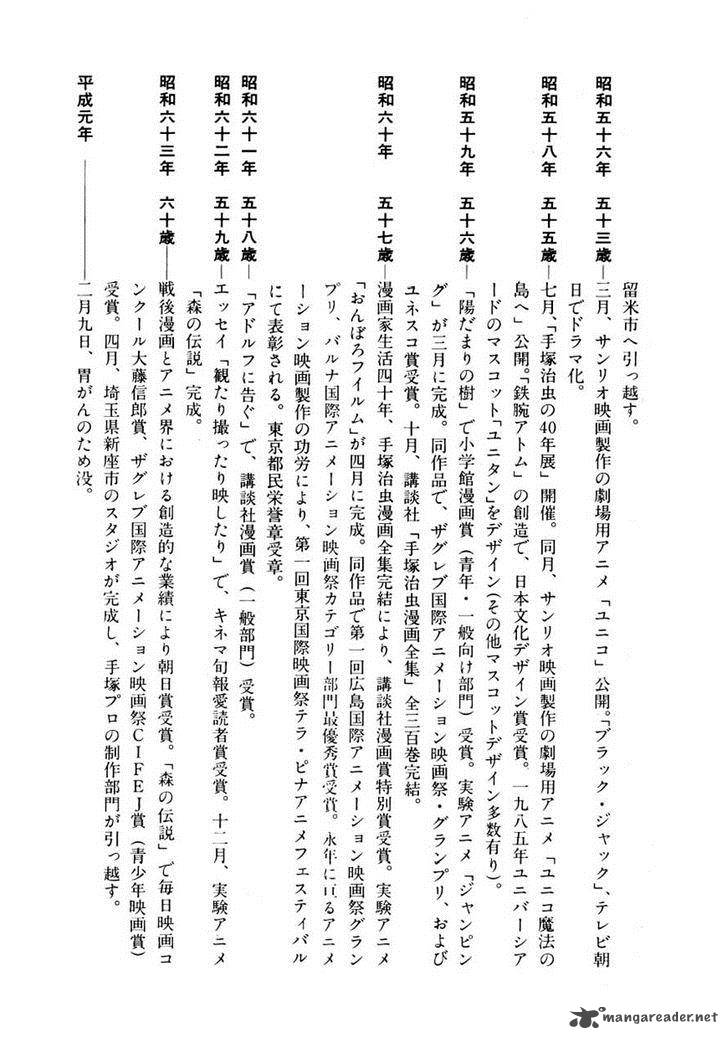 留米市へ引っ越す。
昭和五十六年　五十三歳――三月、サンリオ映画製作の劇場用アニメ「ユニコ」公開。「ブラック・ジャック」、テレビ朝
日でドラマ化。
昭和五十八年　五十五歳――七月、「手塚治虫の40年展」開催。同月、サンリオ映画製作の劇場用アニメ「ユニコ魔法の
島へ」公開。「鉄腕アトム」の創造で、日本文化デザイン賞受賞。一九八五年ユニバーシア
ードのマスコット「ユニタン」をデザイン（その他マスコットデザイン多数有り）。
昭和五十九年　五十六歳――「陽だまりの樹」で小学館漫画賞（青年・一般向け部門）受賞。実験アニメ「ジャンピン
グ」が三月に完成。同作品で、ザグレブ国際アニメーション映画祭・グランプリ、および
ユネスコ賞受賞。十月、講談社「手塚治虫漫画全集」全三百巻完結。
昭和六十年　五十七歳――漫画家生活四十年、手塚治虫漫画全集完結により、講談社漫画賞特別賞受賞。実験アニメ
「おんぼろフイルム」が四月に完成。同作品で第一回広島国際アニメーション映画祭グラン
プリ、バルナ国際アニメーション映画祭カテゴリー部門最優秀賞受賞。永年に亘るアニメ
ーション映画製作の功労により、第一回東京国際映画祭テラ・ピナアニメフェスティバル
にて表彰される。東京都民栄誉章受章。
昭和六十一年　五十八歳――「アドルフに告ぐ」で、講談社漫画賞（一般部門）受賞。
昭和六十二年　五十九歳――エッセイ「観たり撮ったり映したり」で、キネマ旬報愛読者賞受賞。十二月、実験アニメ
「森の伝説」完成。
昭和六十三年　六十歳――戦後漫画とアニメ界における創造的な業績により朝日賞受賞。「森の伝説」で毎日映画コ
ンクール大藤信郎賞、ザグレブ国際アニメーション映画祭CIFEJ賞（青少年映画賞）
受賞。四月、埼玉県新座市のスタジオが完成し、手塚プロの制作部門が引っ越す。
平成元年――二月九日、胃がんのため没。
mangareader.net